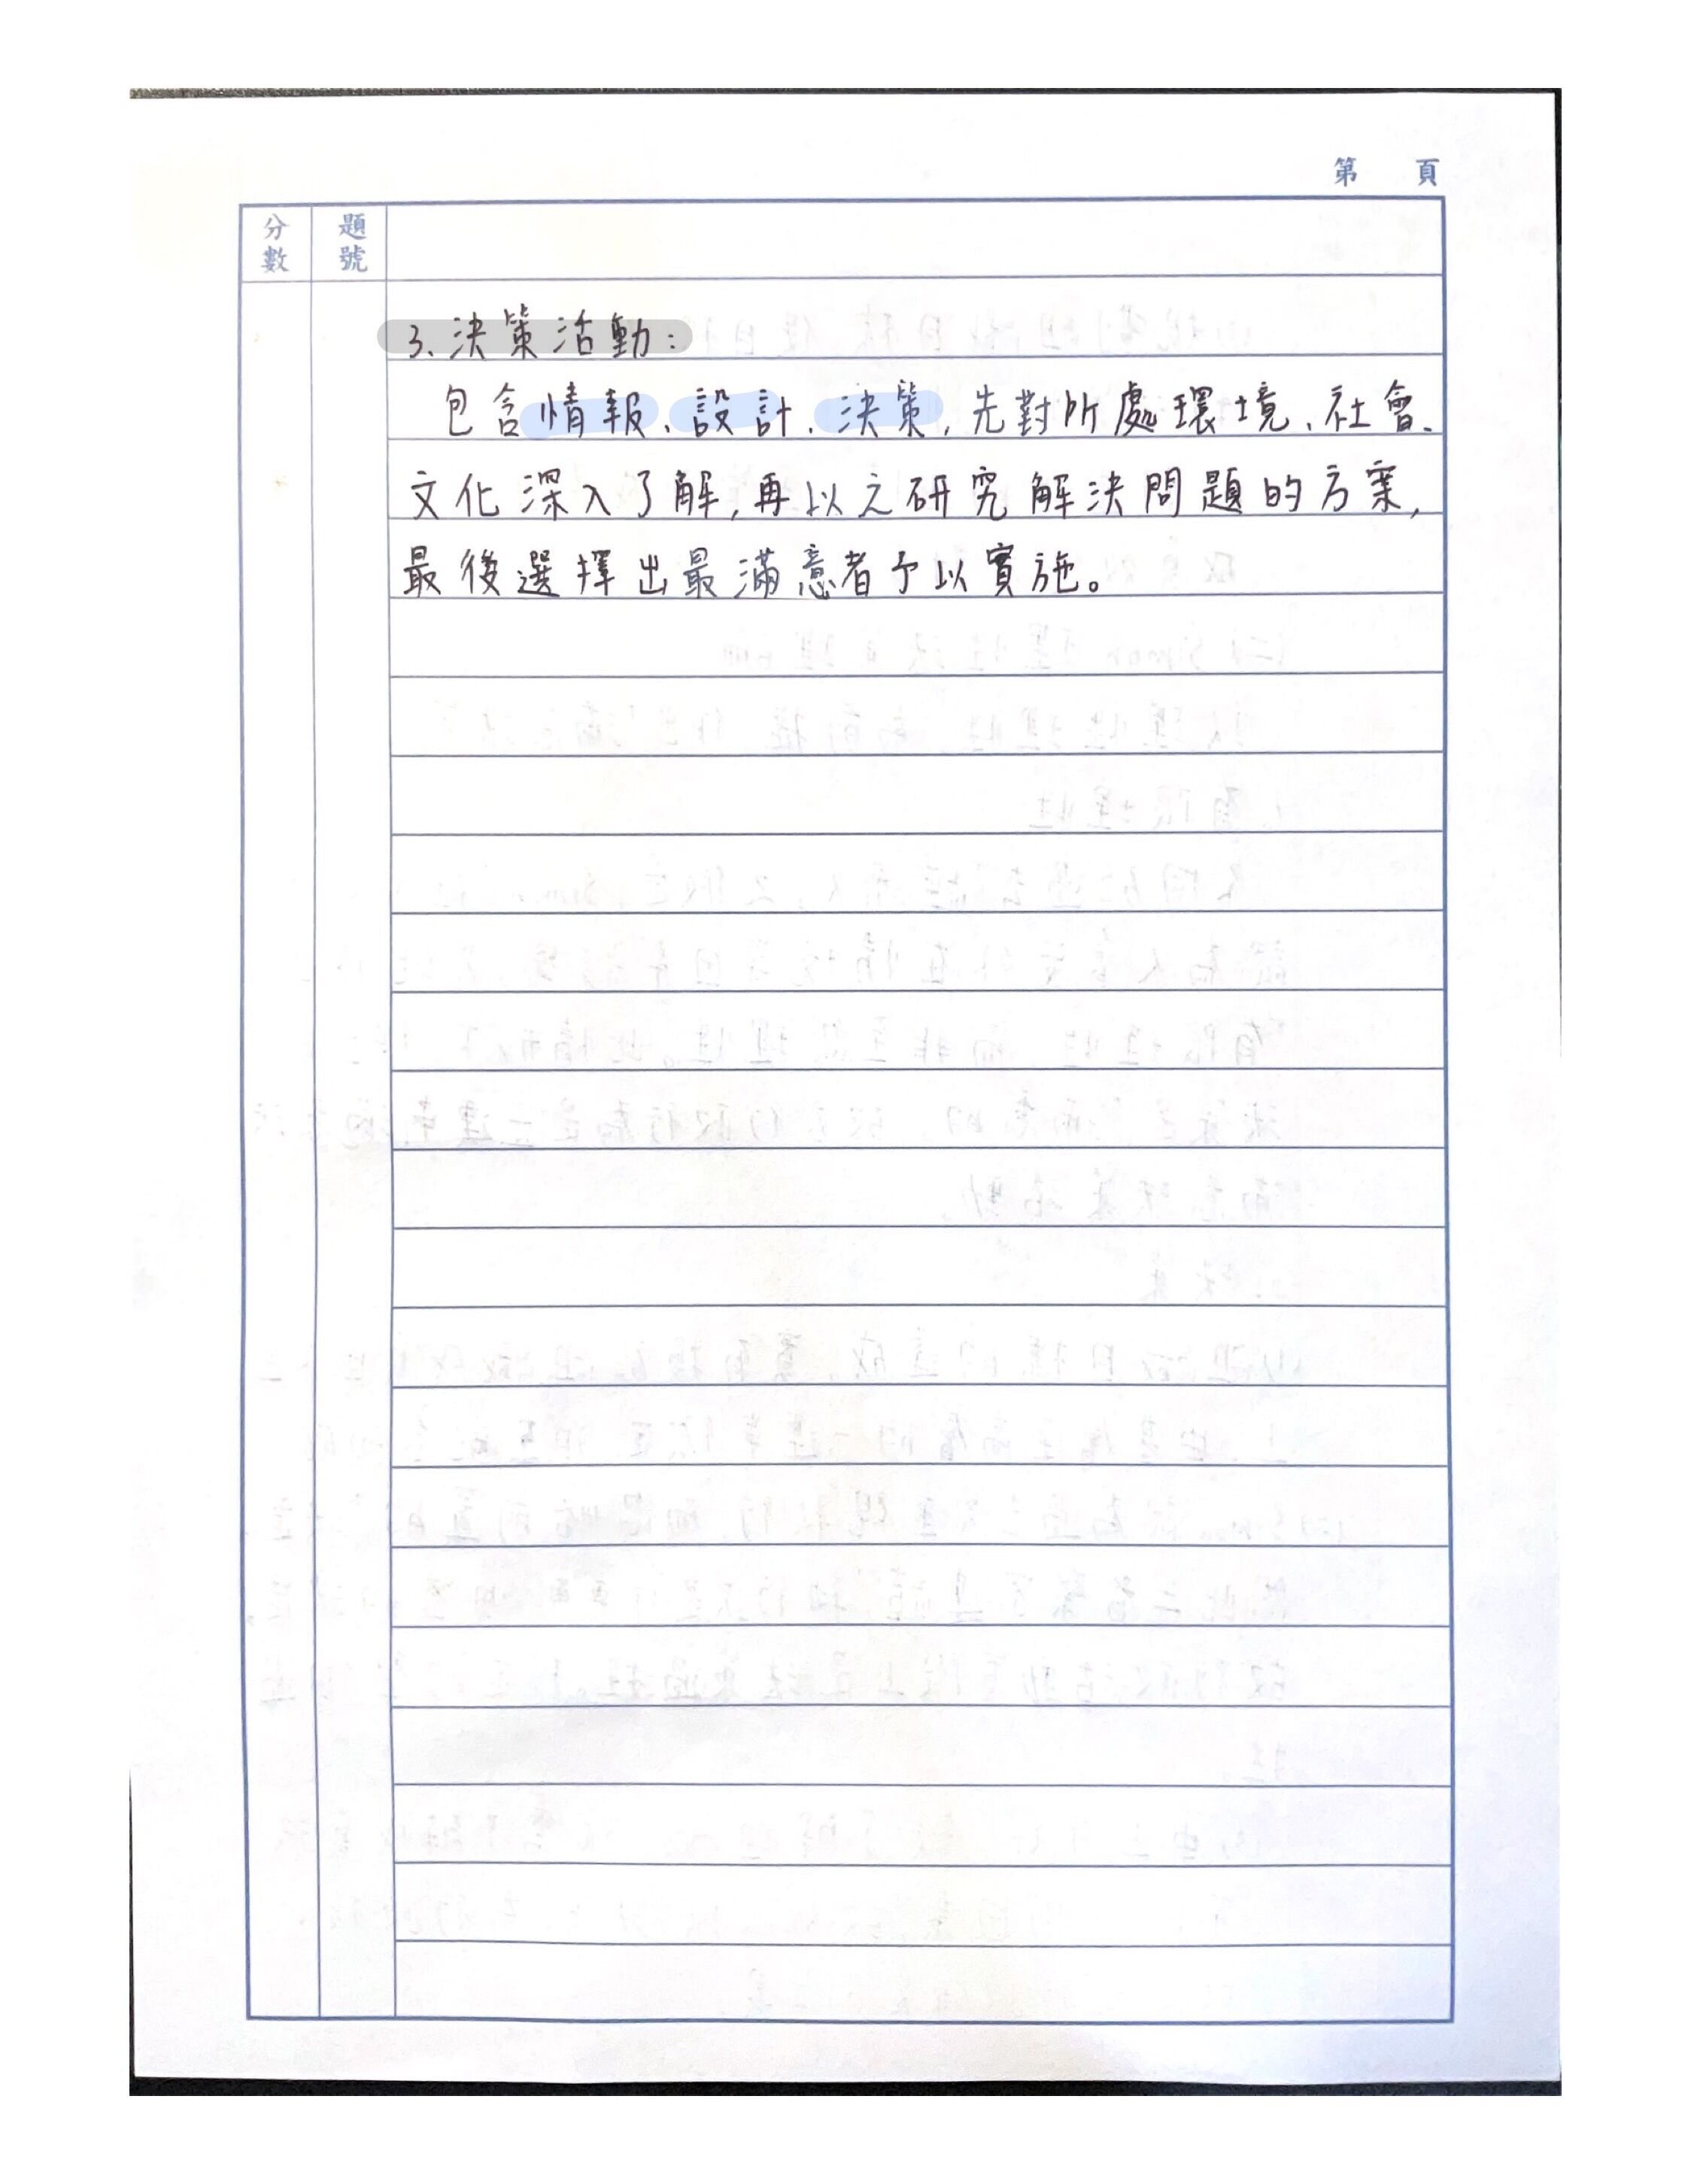 第 頁
分數 題號
3、決策活動：
包含情報、設計、決策，先對所處環境、社會、
文化深入了解，再以之研究解決問題的方案，
最後選擇出最滿意者予以實施。